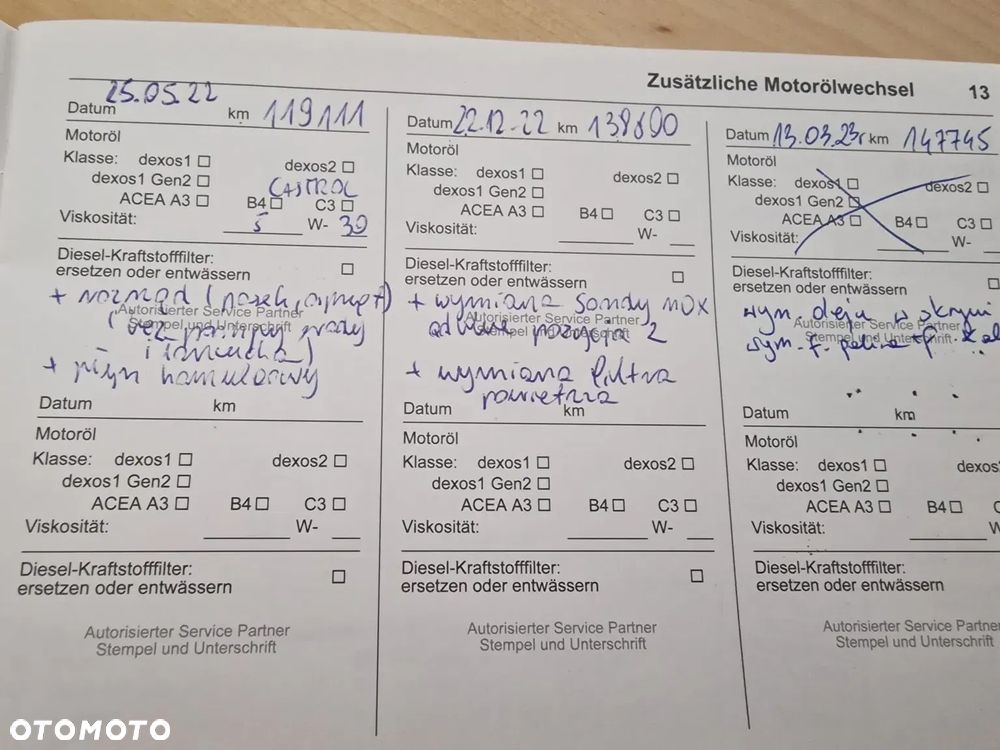 Zusätzliche Motorölwechsel 13
Datum 25.05.22 km 119111
Motoröl
Klasse: dexos1 ☐ dexos2 ☐
dexos1 Gen2 ☐ CASTROL
ACEA A3 ☐ B4 ☐ C3 ☐
Viskosität: 5 W- 30
Diesel-Kraftstofffilter:
ersetzen oder entwässern ☐
+ rozrząd (pasek, osprzęt)
Autorisierter Service Partner
Stempel und Unterschrift
( bez pompy wody
i łańcucha)
+ płyn hamulcowy
Datum 22.12.22 km 138600
Motoröl
Klasse: dexos1 ☐ dexos2 ☐
dexos1 Gen2 ☐
ACEA A3 ☐ B4 ☐ C3 ☐
Viskosität: W-
Diesel-Kraftstofffilter:
ersetzen oder entwässern ☐
+ wymiana sondy NOX
Autorisierter Service Partner
pozycja 2
Stempel und Unterschrift
+ wymiana filtra
powietrza
Datum 13.03.23r km 147745
Motoröl
Klasse: dexos1 ☐ dexos2 ☐
dexos1 Gen2 ☐
ACEA A3 ☐ B4 ☐ C3 ☐
Viskosität: W-
Diesel-Kraftstofffilter:
ersetzen oder entwässern ☐
wym. oleju w skrzyni
Autorisierter Service Partner
Stempel und Unterschrift
wym. f. paliwa + f.
Datum km
Motoröl
Klasse: dexos1 ☐ dexos2 ☐
dexos1 Gen2 ☐
ACEA A3 ☐ B4 ☐ C3 ☐
Viskosität: W-
Diesel-Kraftstofffilter:
ersetzen oder entwässern ☐
Autorisierter Service Partner
Stempel und Unterschrift
Datum km
Motoröl
Klasse: dexos1 ☐ dexos2 ☐
dexos1 Gen2 ☐
ACEA A3 ☐ B4 ☐ C3 ☐
Viskosität: W-
Diesel-Kraftstofffilter:
ersetzen oder entwässern ☐
Autorisierter Service Partner
Stempel und Unterschrift
Datum km
Motoröl
Klasse: dexos1 ☐ dexos
dexos1 Gen2 ☐
ACEA A3 ☐ B4 ☐ C
Viskosität: W
Diesel-Kraftstofffilter:
ersetzen oder entwässern
Autorisierter Service Par
Stempel und Unterschrift
OTOMOTO